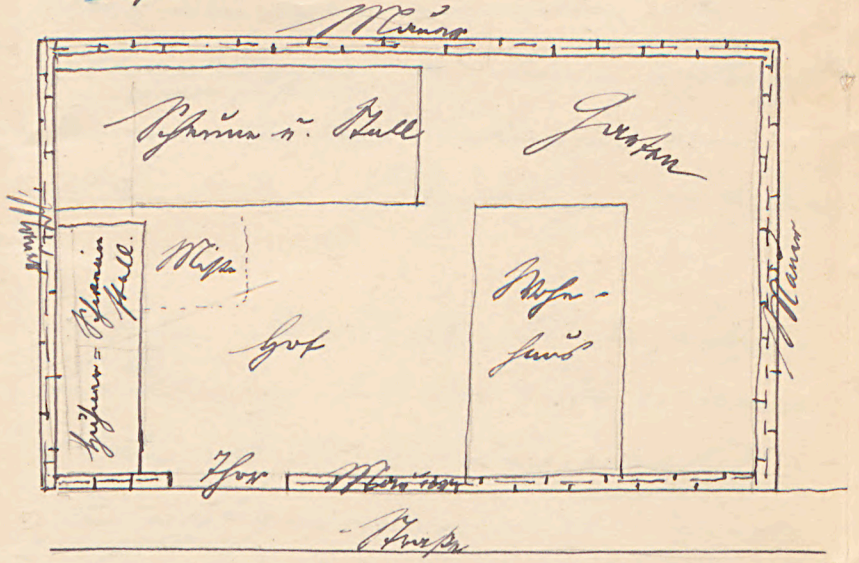 Mauer
Scheune u. Stall
Garten
Mauer
Hühner= Schweine
stall.
Mist
Wohn-
haus
Mauer
Hof
Thor
Mauer
Straße